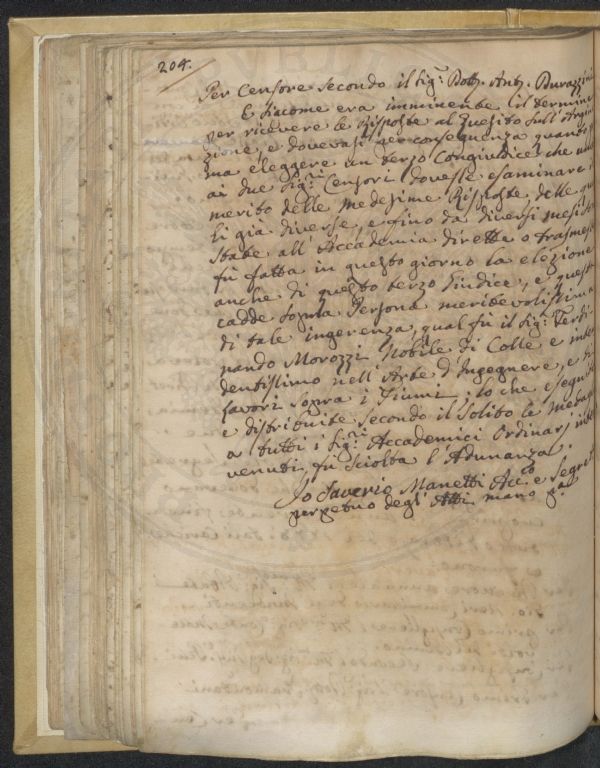 204.
Per Censore Secondo il Sig.r Dott. Ant. Durazzini
E siccome era imminente il termine
per ricevere le Risposte al Quesito sull' Argina
zione, e dovevasi per conseguenza quanto p
ma eleggere un terzo Congiudice che unito
ai due Sig.ri Censori dovesse esaminare il
merito delle medesime Risposte delle qua
li già diverse, e fino da diversi mesi
state all' Accademia dirette o trasmesse
fù fatta in questo giorno la elezione
anche di questo terzo Giudice, e questa
cadde sopra Persona meritevolissima
di tale ingerenza, qual fù il Sig.r Ferdi
nando Morozzi Nobile di Colle e inten
dentissimo nell' Arte d' Ingegnere, e di
lavori sopra i Fiumi; lo che eseguito
e distribuite secondo il Solito le Medaglie
a tutti i Sig.ri Accademici Ordinarj inter
venuti, fù sciolta l' Adunanza.
Io Saverio Manetti Acc.o e Segret.
perpetuo degl' Atti mano p.a